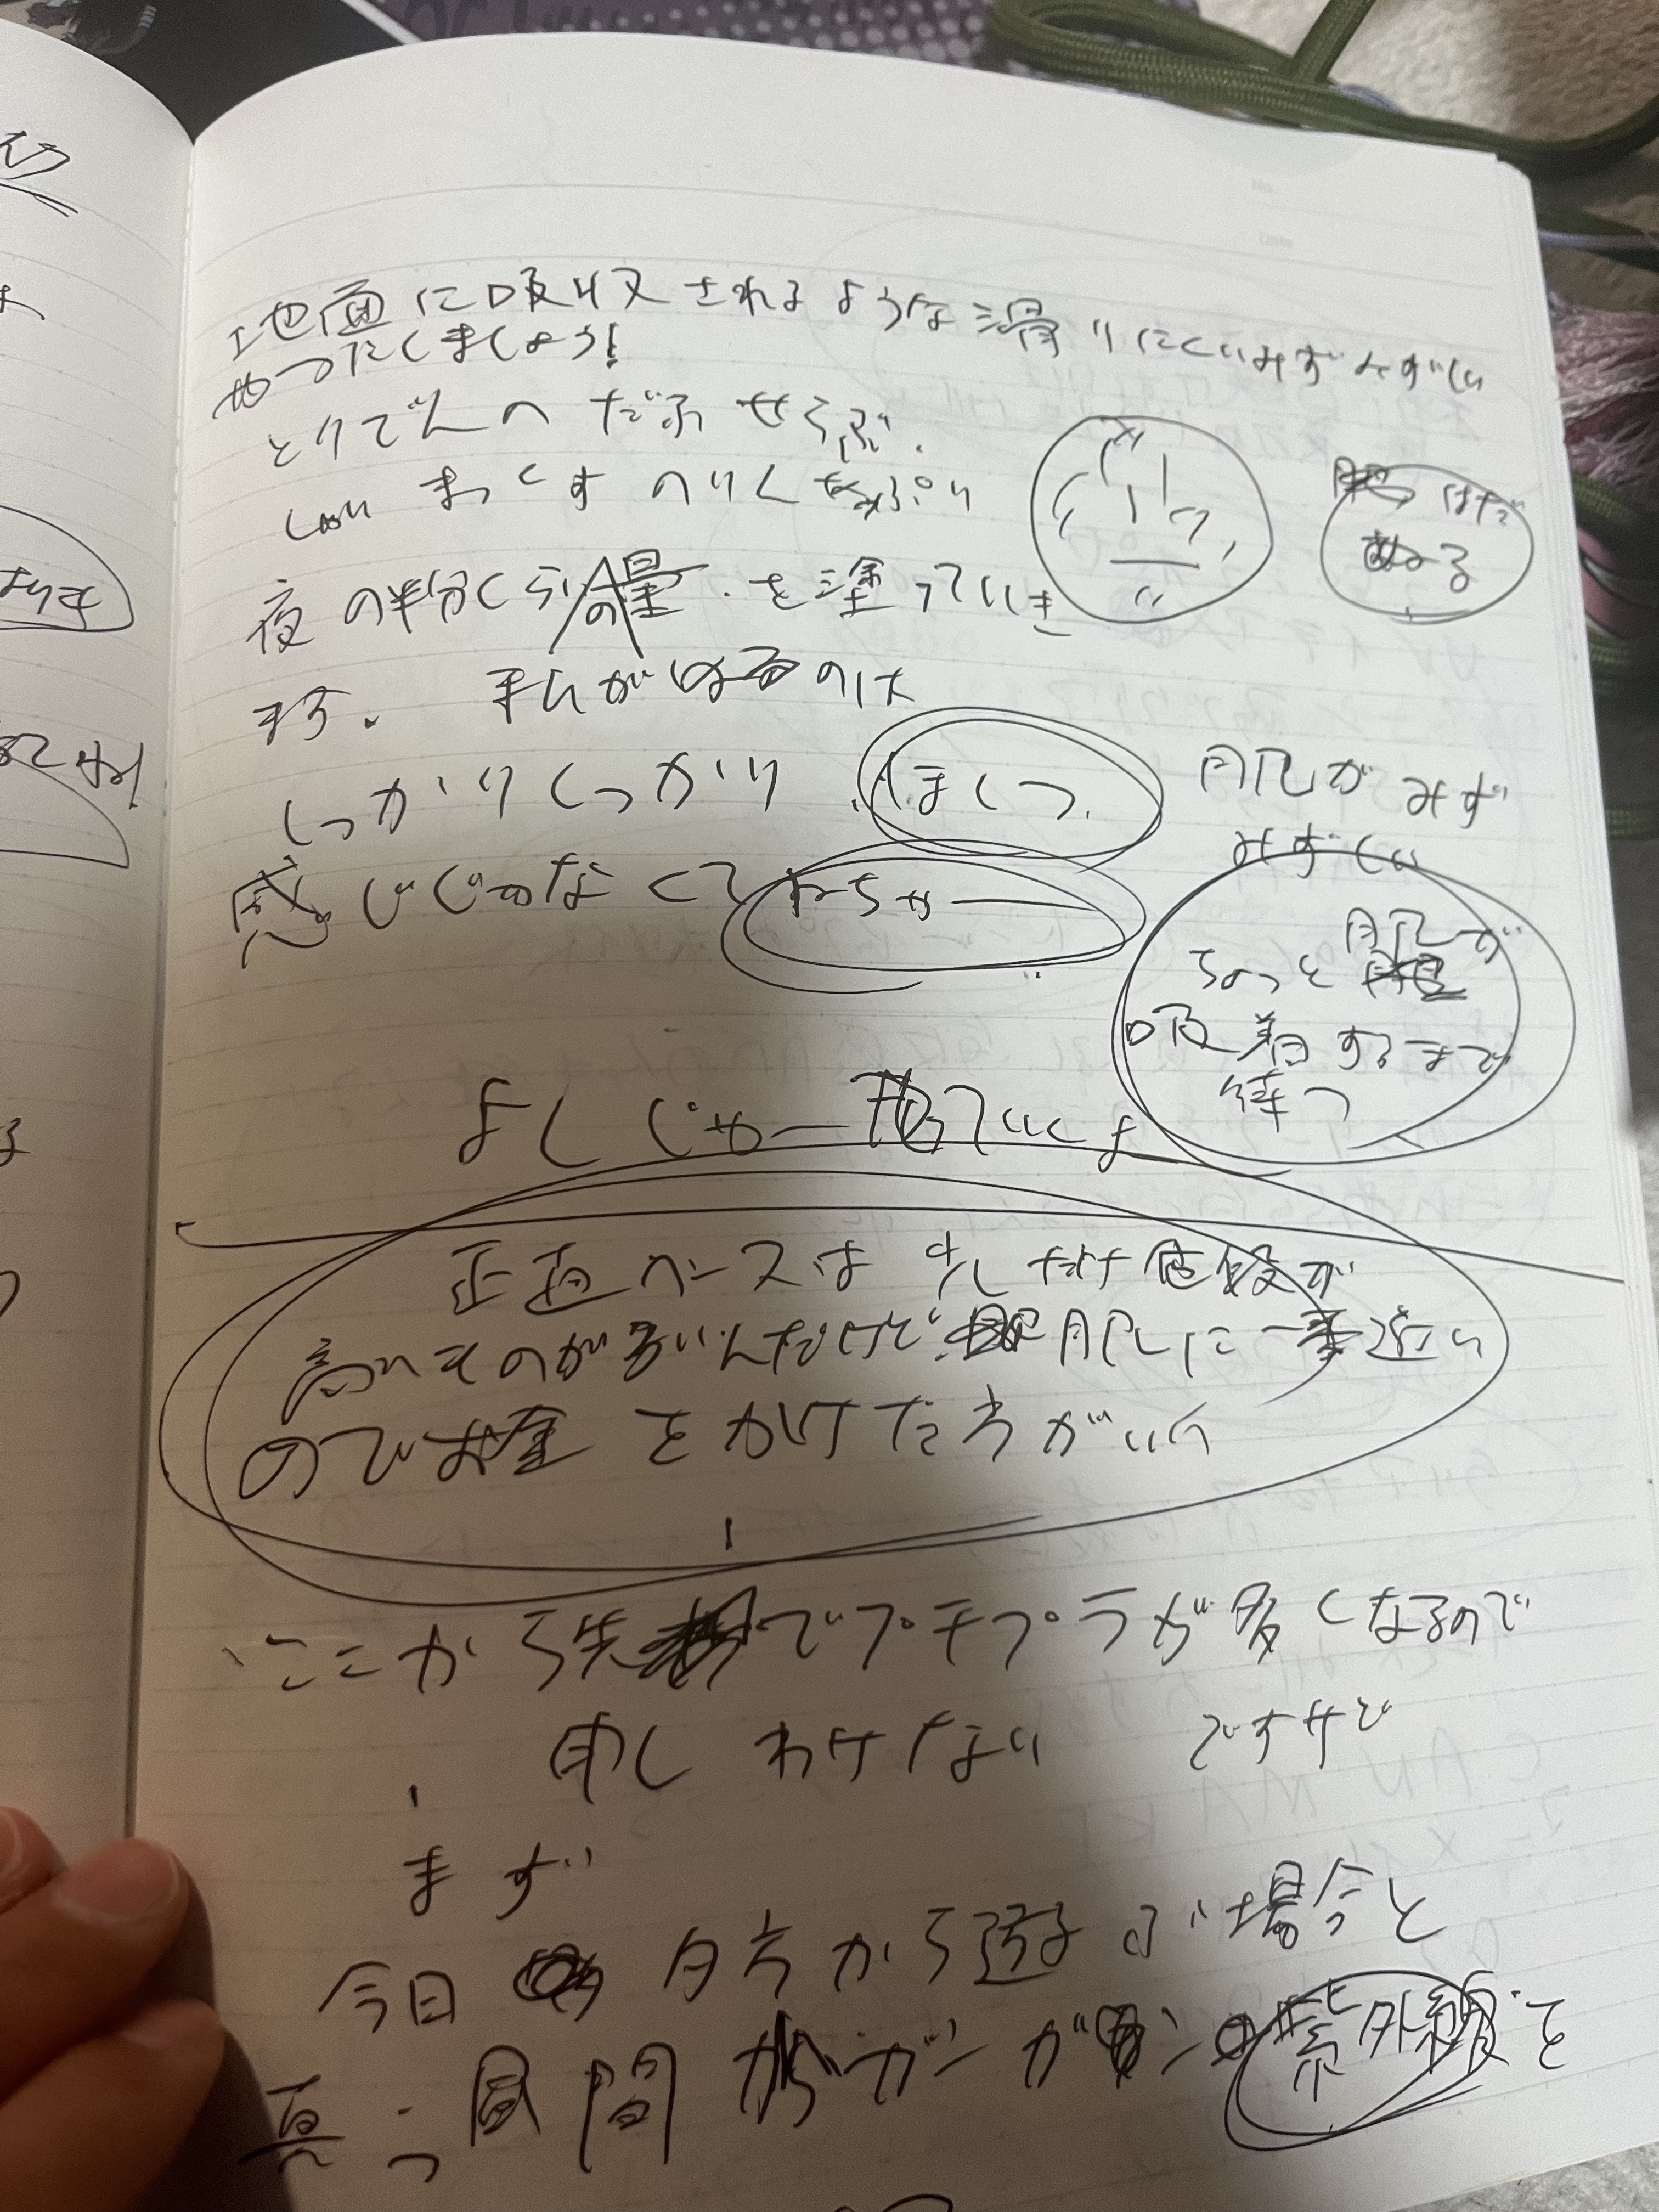 地面に吸収されるような滑りにくいみずみずしい
やつだしましょう!
とりでんへ だぶ せらぶ.
まっくす のりくちゃぷり
はだ
ぬる
夜の半分くらいの量を塗っていき
ます. 私がはるのは
しっかりしっかり ほくっ
感じじゃなくて ねちゃー
肌がみず
みずしい
ちょっと肌が
吸着するまで
待つ
よし じゃー塗っていくよ
正直ベースは少しだけ値段が
高いものが多いんだけど、肌に一番近い
のでお金をかけた方がいい
ここから先でプチプラが多くなるので
申しわけない ですけど
まず
今日 夕方から遊ぶ場合と
真っ昼間 ガンガン 紫外線を